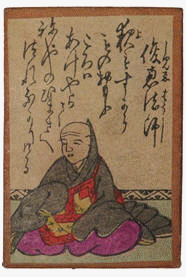 俊恵法師
夜もすから
ものおもふ
ころは
あけやらて
ねやのひまさへ
つれなかりけり